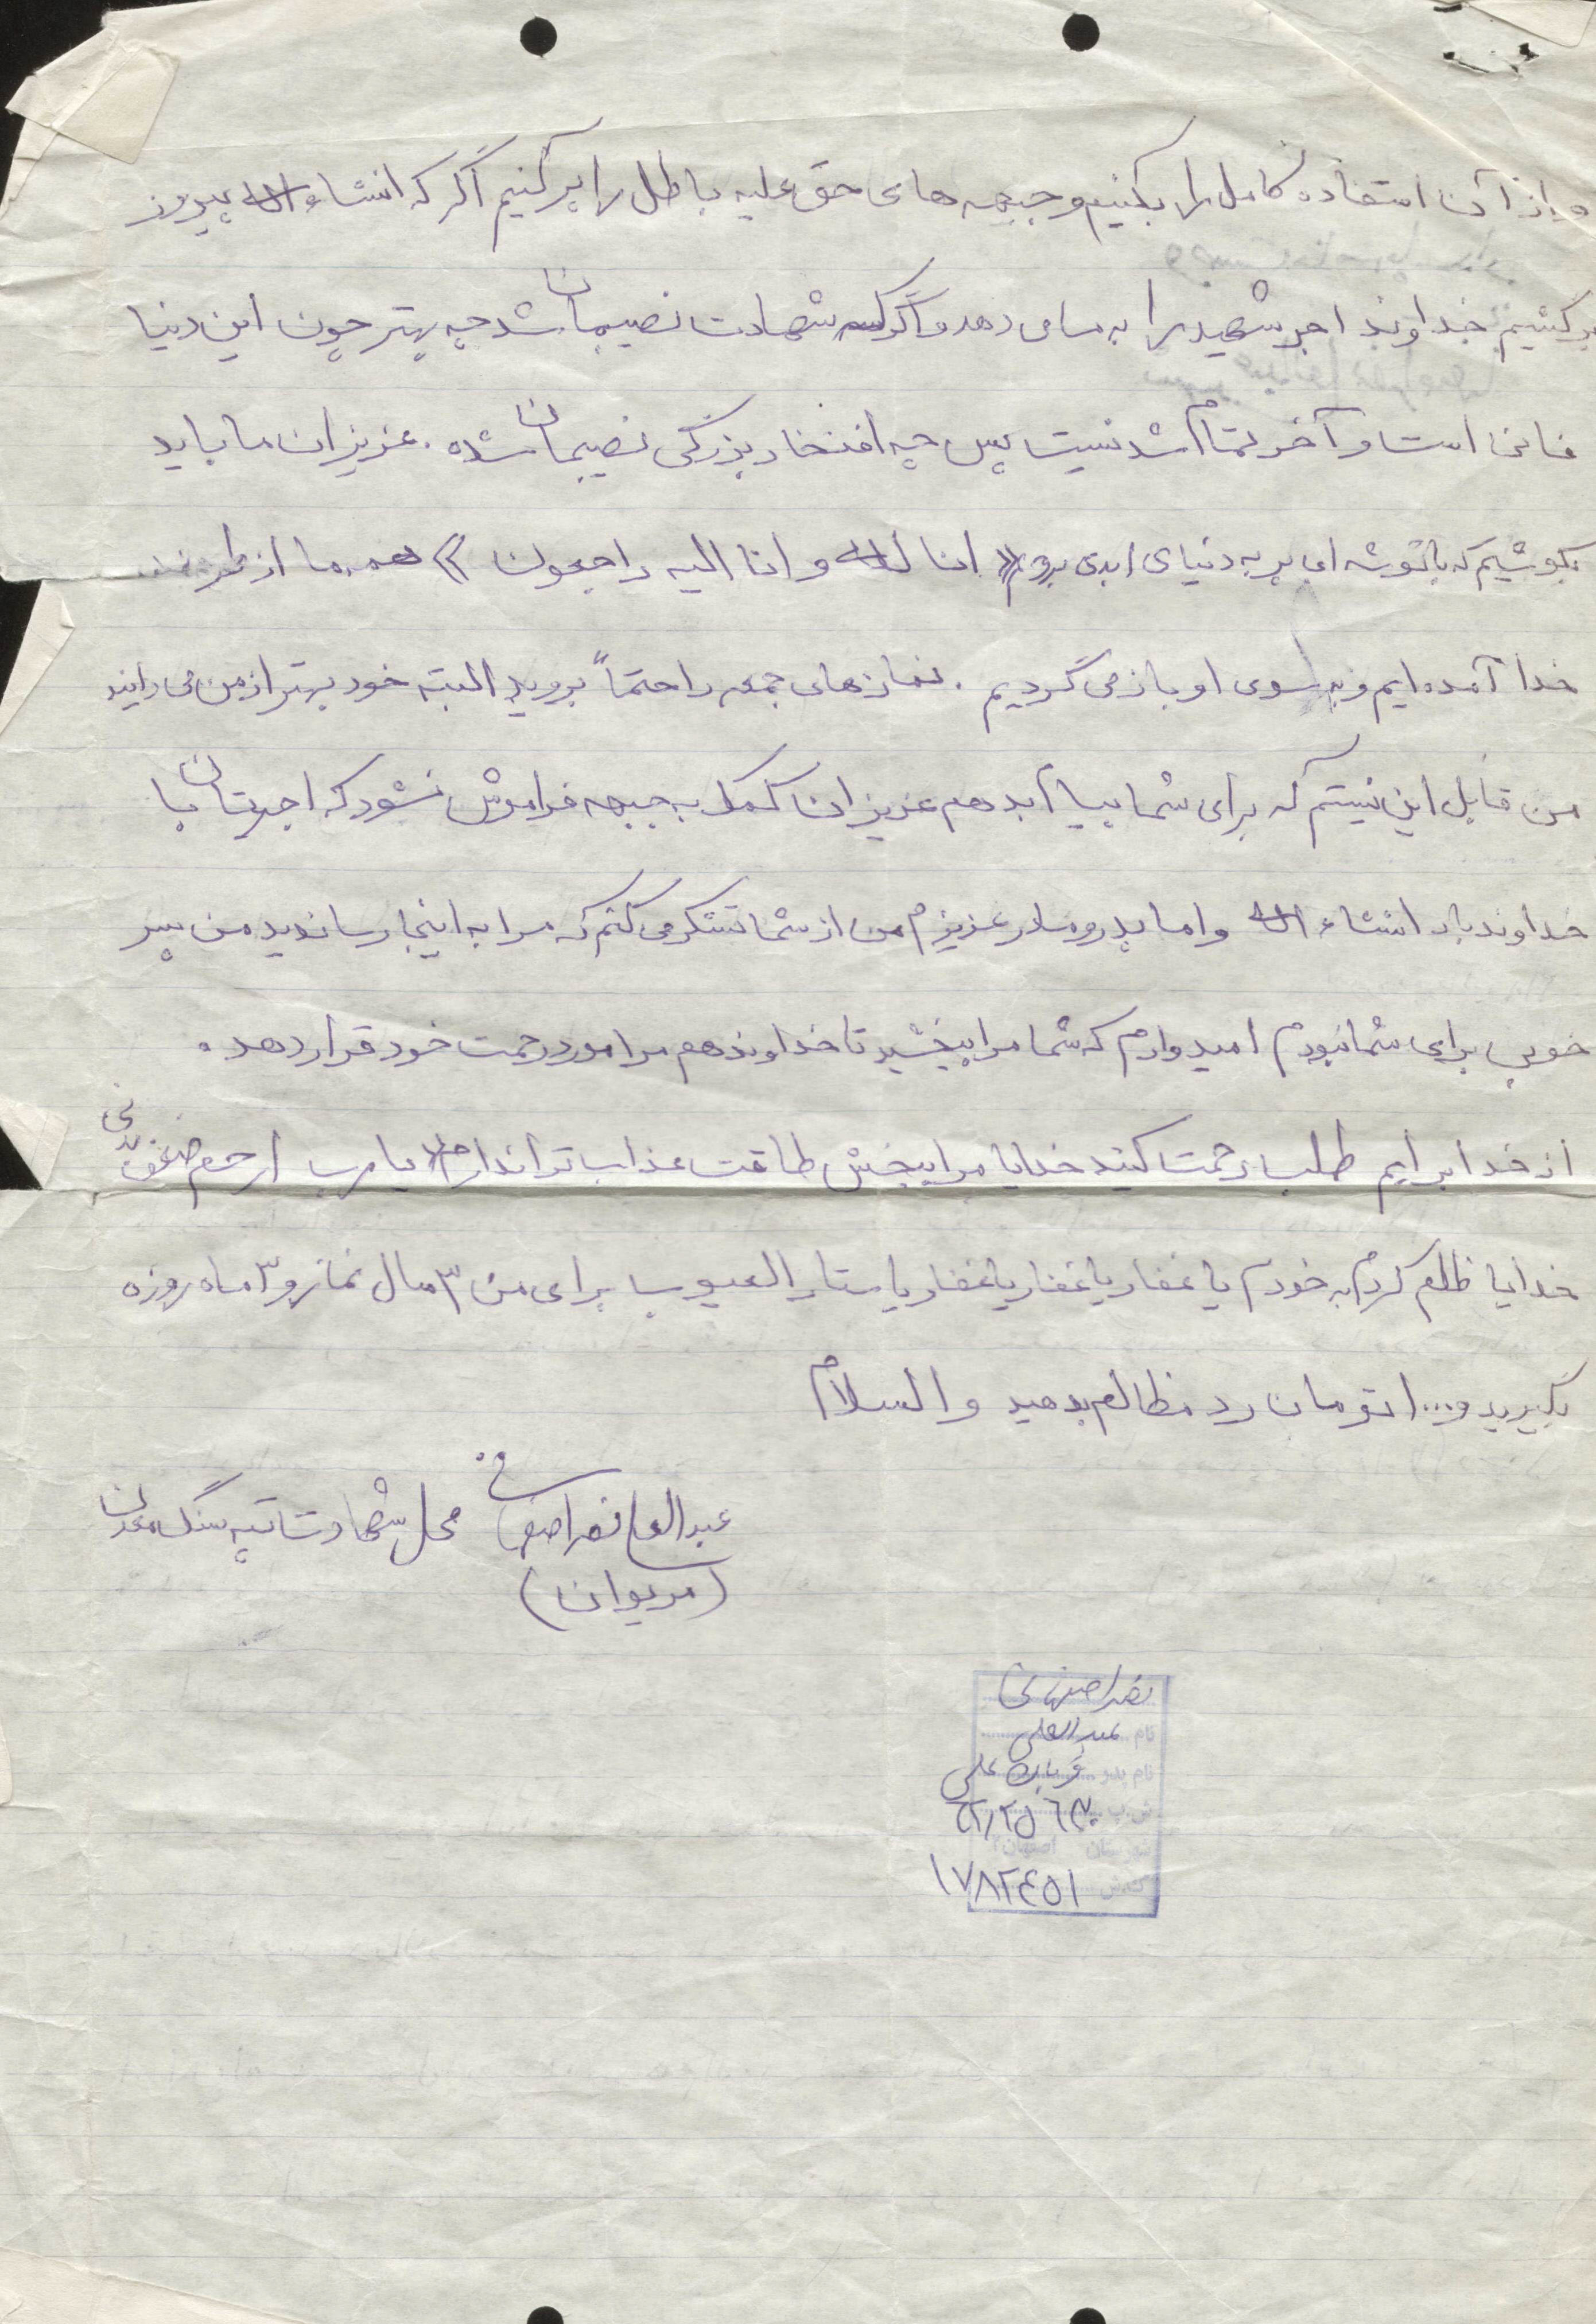 و از آن استفاده کامل را بکنیم و جبهه های حق علیه باطل را پر کنیم اگر که انشاء الله پیروز
برگشتیم خداوند اجر شهید را به ما می دهد و اگر که شهادت نصیبمان شد چه بهتر چون این دنیا
فانی است و آخر تمام شدنیست پس چه افتخار بزرگی نصیبمان شده . عزیزان ما باید
بکوشیم که با توشه ای پر به دنیای ابدی برویم « انا لله و انا الیه راجعون » همه ما از طرف
خدا آمده ایم و به سوی او باز می گردیم . نمازهای جمعه را حتماً بروید البته خود بهتر از من می دانید
من قابل این نیستم که برای شما پیام بدهم عزیزان کمک به جبهه فراموش نشود که اجرتان با
خداوند باد انشاء الله و اما پدر و مادر عزیزم من از شما تشکر می کنم که مرا به اینجا رساندید من پسر
خوبی برای شما نبودم امیدوارم که شما مرا ببخشید تا خداوند هم مرا مورد رحمت خود قرار دهد .
از خدا برایم طلب رحمت کنید خدایا مرا ببخش طاقت عذاب تو را ندارم « یا رب ارحم ضعف بدنی
خدایا ظلم کردم به خودم یا غفار یا غفار یا غفار یا ستار العیوب برای من ۳ سال نماز و ۳ ماه روزه
بگیرید و ۱۰۰۰ تومان رد مظالم بدهید والسلام
عبدالعلی نصراصفهانی محل شهادت تپه سنگ معدن
(مریوان)
نصراصفهانی
نام عبدالعلی
نام پدر قربانعلی
ش.پ
شهرستان اصفهان
کد ش ۱۷۸۲٤۵۱